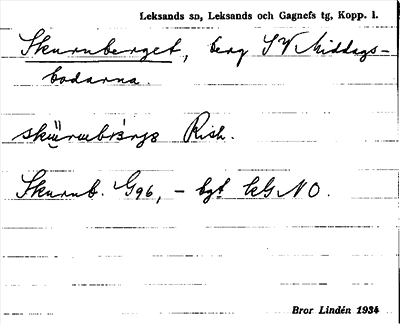 Leksands sn, Leksands och Gagnefs tg, Kopp. l.
Skurnberget, berg SV Middags-
bodarna.
Rish.
Skurnb. G96, – bgt kG NO.
Bror Lindén 1934